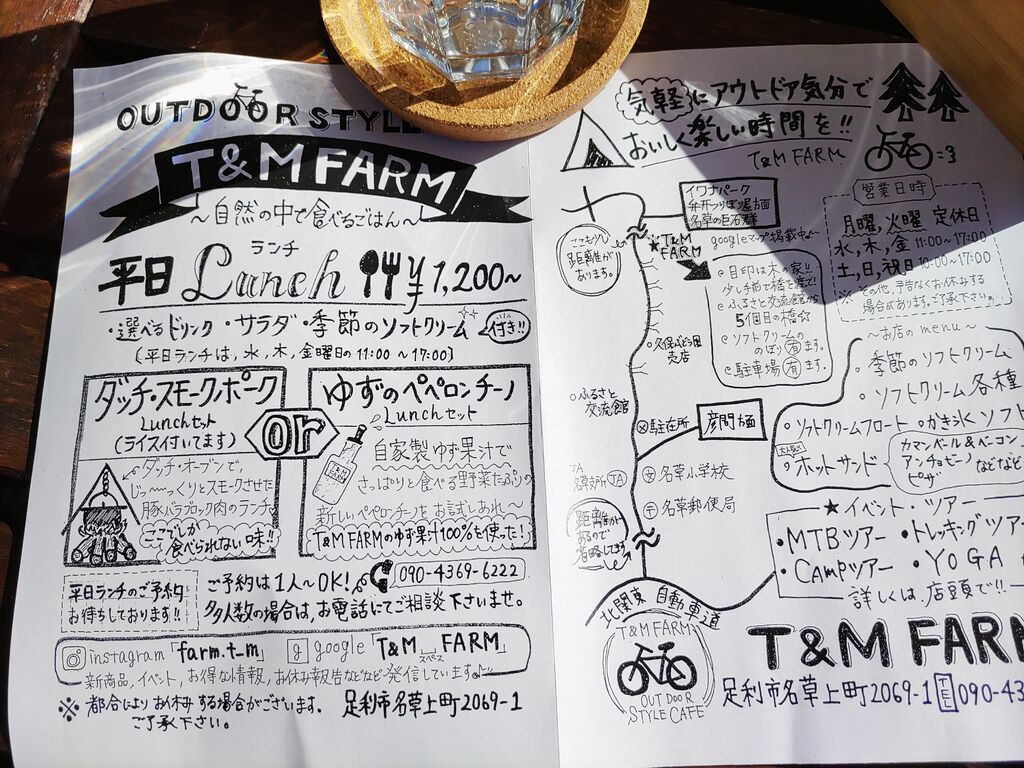 OUTDOOR STYLE
T&M FARM
～自然の中で食べるごはん～
ランチ
平日 Lunch ¥1,200～
・選べるドリンク ・サラダ ・季節のソフトクリーム 付き!!
(平日ランチは、水、木、金曜日の11:00～17:00)
ダッチ・スモークポーク
Lunchセット
(ライス付いてます)
ダッチ・オーブンで、
じっ～っくりとスモークさせた
豚バラブロック肉のランチ
ここでしか
食べられない味!!
or
ゆずのペペロンチーノ
Lunchセット
自家製ゆず果汁で
さっぱりと食べる野菜たっぷりの
新しいペペロンチーノをお試しあれ
T&M FARMのゆず果汁100%を使った!
平日ランチのご予約
お待ちしております!!
ご予約は1人～OK! 090-4369-6222
多人数の場合は、お電話にてご相談下さいませ。
instagram「farm.t_m」 google「T&M FARM」
スペース
新商品、イベント、お得な情報、お休み報告などなど発信しています
※都合によりお休みする場合がございます。
ご了承下さい。
足利市名草上町2069-1
気軽にアウトドア気分で
おいしく楽しい時間を!!
T&M FARM
イワナパーク
名草の巨石群
ここより
距離感が
あります。
T&M
FARM
googleマップ掲載中
目印は木の家!!
少し手前で橋を渡って!
ふるさと交流館から
5個目の橋☆
ソフトクリームの
のぼり有ます。
駐車場有ます。
売店
ふるさと
交流館
駐在所
彦間方面
JA
名草小学校
名草郵便局
距離感が
あるので
省略してます
北関東自動車道
営業日時
月曜、火曜 定休日
水、木、金 11:00～17:00
土、日、祝日 10:00～17:00
※その他、予告なくお休みする
場合があります。ご了承下さい。
～お店のmenu～
・季節のソフトクリーム
・ソフトクリーム各種
・ソフトクリームフロート ・かき氷 ソフト
・ホットサンド
カマンベール&ベーコン
アンチョビーノ
ピザ
などなど
★イベント・ツアー
・MTBツアー ・トレッキングツアー
・CAMPツアー ・YOGA
詳しくは、店頭で!!
T&M FARM
OUTDOOR
STYLE CAFE
T&M FARM
足利市名草上町2069-1 TEL 090-43